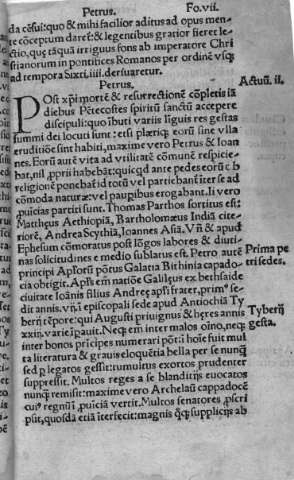 Petrus. Fo.vii.
da cēsui: quo & mihi facilior aditus ad opus men-
te cōceptum daret̄: & legentibus gratior fieret le-
ctio, quę tāquā irriguus fons ab imperatore Chri
stianorum in pontifices Romanos per ordinē vsq̄
ad tempora Sixti.iiii. deriuaretur.
Petrus. Actuū.ii.
POst xp̄i mortē & resurrectionē cōpletis iā
diebus Pētecostes spiritū sanctū accepere
discipuli: quo ībuti variis liguis res gestas
summi dei locuti sunt: & si plæriq; eorū sine vlla
eruditiōe sint habiti, maxime vero Petrus & Ioan
nes. Eorū autē vita ad vtilitatē cōmunē respicie-
bat, nil, p̄prii habebāt: quicqd ante pedes eorū ob
religionē ponebat̄ id totū vel partiebant̄ iter se ad
cōmoda naturæ, vel paupibus erogabant. Ii vero
,puicias partiti sunt. Thomas Parthos sortitus est:
Matthęus Aethiopiā, Bartholomæus Indiā citę-
riorē, Andrea Scythiā, Ioannes Asiā. Vn̄ & apud
Ephesum cōmoratus post lōgos labores & diutī-
nas solicitudines e medio sublatus est. Petro autē Prima pe
principi Aplorū pōtus Galatia Bithinia capado- tri sedes.
cia obtigit. Apl̄s em̄ natiōe Galilęus ex bethsaide
ciuitate Ioānis filius Andreę apl̄i frater, prim⁹ se-
dit annis. vii. ī episcopali sede apud Antiochiā Ty
berii tēpore: qui Augusti priuignus & hęres annis Tyberii
xxiii. varie īpauit. Neq; em̄ inter malos oīno, neq; gesta.
inter bonos pricipes numerari pōt: ī hoīe fuit mul
ta literatura & grauis eloquētia bella per se nunq̄
sed p̄ legatos gessit: tumultus exortos prudenter
suppressit. Multos reges a se blanditiis euocatos
nunq̄ remisit: maxime vero Archelaū cappadocē
cui⁹ regnū ī ,puiciā vertit. Multos senatores ,pscri
psit, quosdā etiā iterfecit: magnis q̄z suppliciis ab